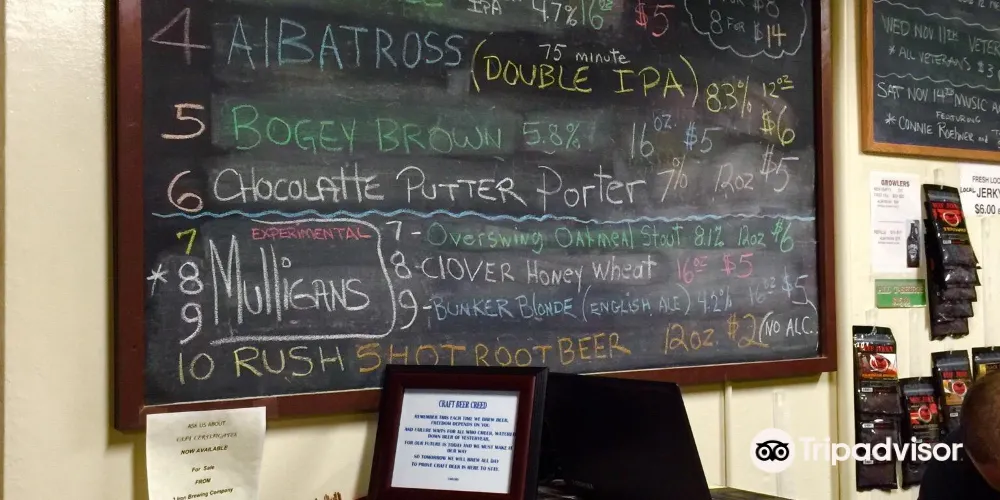 IPA 4.7% 16oz $5
FOR $8
8 FOR $14
4 ALBATROSS (75 minute DOUBLE IPA) 8.3% 12oz $6
5 BOGEY BROWN 5.8% 16oz. $5
6 CHOCOLATTE PUTTER Porter 7% 12oz $5
EXPERIMENTAL
7 7- Overswing Oatmeal Stout 8.1% 12oz $6
*8 Mulligans 8- CLOVER Honey Wheat 16oz $5
9 9- BUNKER BLONDE (ENGLISH ALE) 4.2% 16oz $5
10 RUSH SHOT ROOT BEER 12oz. $2 (NO ALC.)
WED NOV 11TH VETE
* ALL VETERANS $3
SAT NOV 14TH MUSIC
FEATURING
* CONNIE
GROWLERS
FRESH LOC
JERK
$6.00
ASK US ABOUT
GIFT CERTIFICATES
NOW AVAILABLE
For Sale
FROM
Iron Brewing Company
CRAFT BEER CREED
REMEMBER THIS EACH TIME WE BREW BEER,
FREEDOM DEPENDS ON YOU
AND FAILURE WAITS FOR ALL WHO CHEER, WATERED
DOWN BEER OF YESTERYEAR.
FOR OUR FUTURE IS TODAY AND WE MUST MAKE IT
OUR WAY
SO TOMORROW WE WILL BREW ALL DAY
TO PROVE CRAFT BEER IS HERE TO STAY.
Tripadvisor